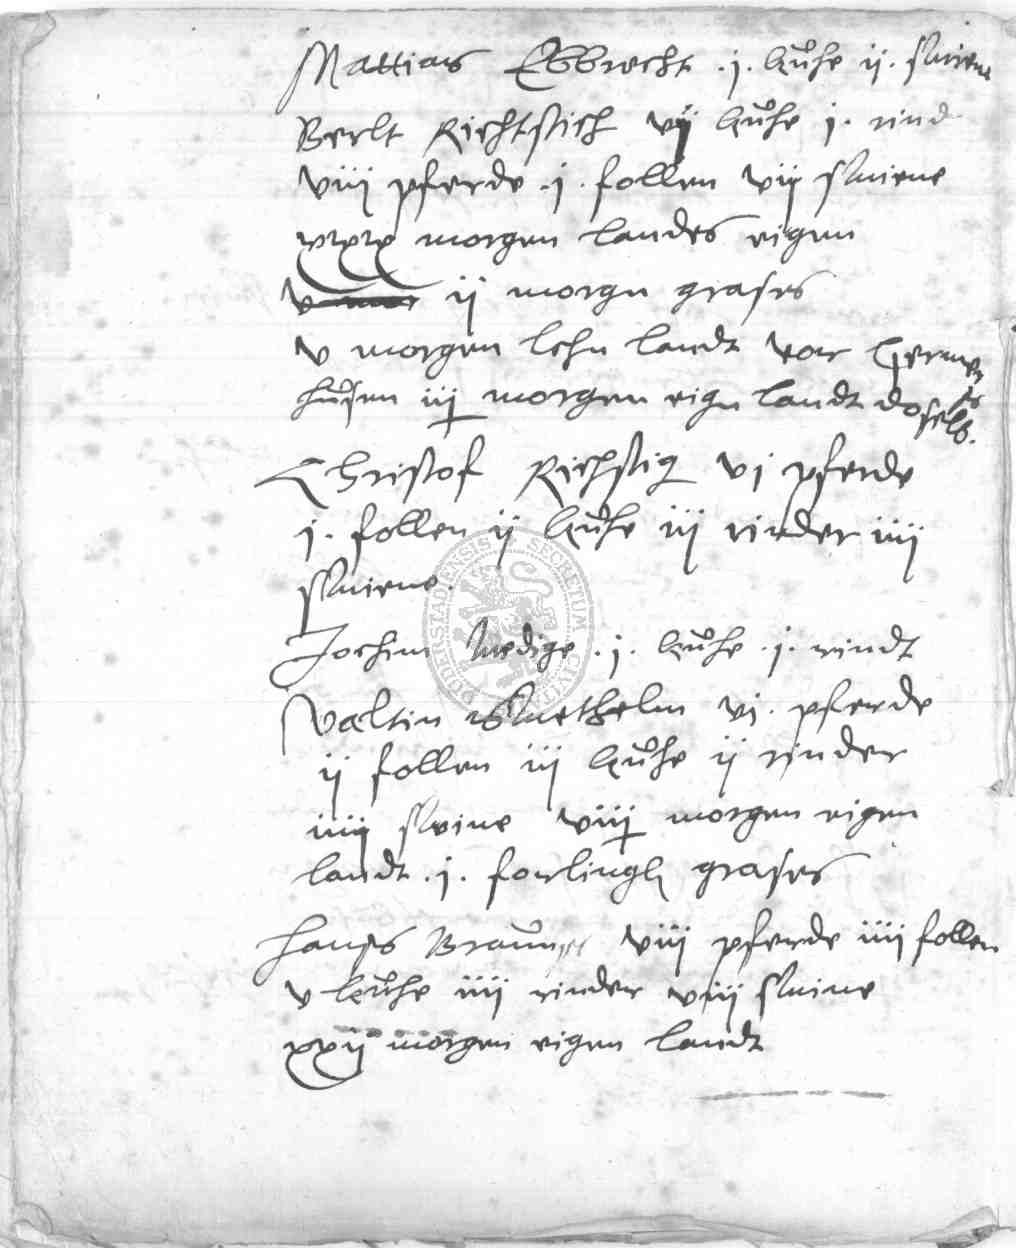 Mattias Ebbrecht .j. kuͦhe ij. swiene
Berlt Richtstich vij kuͦhe j. rind
viij pferde .j. follen vij swiene
xxx morgen landes eigen
ij morgn grases
v morgen lehn landt vor Germer
huͦsen iij morgen eign landt doselbs.
Christof Richstig vj pferde
j. follen ij kuͦhe iij rinder iiij
swiene.
Jochim Wedige .j. kuͦhe .j. rindt
Valtin vj. pferde
ij follen iij kuͦhe ij rinder
iiij swine viij morgen eigen
landt .j. forlingk grases
Hanss viij pferde iiij follen
v kuͦhe iiij rinder viij swine
xxij morgen eigen landt
DUDERSTADENSIS SECRETUM CIVITATIS